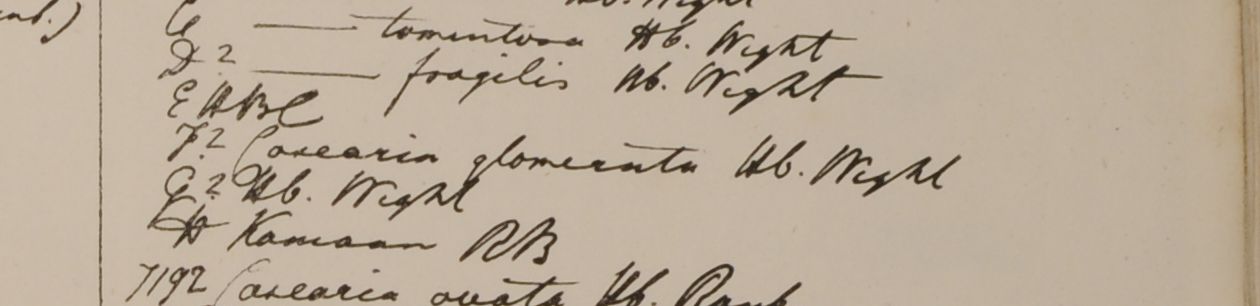 Hb. Wight
C —— tomentosa Hb. Wight
D? —— fragilis Hb. Wight
E HBC
F? Casearia glomerata Hb. Wight
G? Hb. Wight
H Kamaon RB
7192 Casearia ovata Hb. Roxb